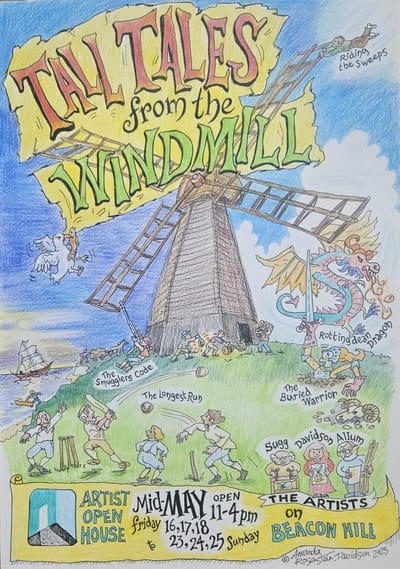 TALL TALES
from the
WINDMILL
Riding
the Sweeps
Rottingdean
Dragon
The
Smugglers Code
The Longest Run
The
Buried
Warrior
Sugg Davidson Allum
ARTIST
OPEN
HOUSE
Mid-MAY OPEN
11-4pm
friday 16,17,18
to 23,24,25 Sunday
THE ARTISTS
on
BEACON HILL
© Amanda
Rosenstein Davidson 2025